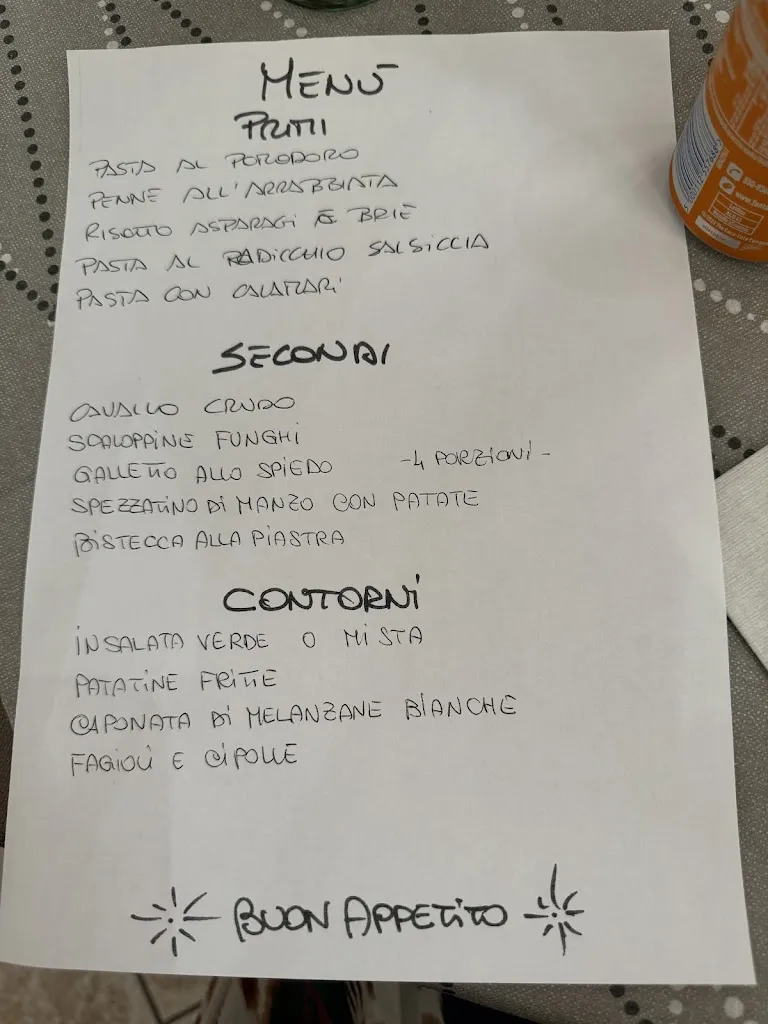 MENÙ
PRIMI
PASTA AL POMODORO
PENNE ALL'ARRABBIATA
RISOTTO ASPARAGI E BRIE
PASTA AL RADICCHIO SALSICCIA
PASTA CON CALAMARI
SECONDI
CAVALLO CRUDO
SCALOPPINE FUNGHI
GALLETTO ALLO SPIEDO -4 PORZIONI-
SPEZZATINO DI MANZO CON PATATE
BISTECCA ALLA PIASTRA
CONTORNI
INSALATA VERDE O MISTA
PATATINE FRITTE
CAPONATA DI MELANZANE BIANCHE
FAGIOLI E CIPOLLE
BUON APPETITO